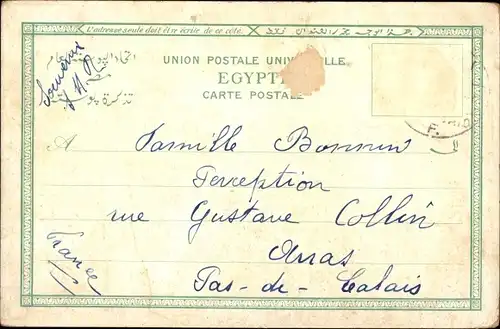 L'adresse seule doit être écrite de ce côté.
UNION POSTALE UNIVERSELLE
EGYPTE
CARTE POSTALE
Souvenir
A
Famille Bonnin
Perception
rue Gustave Collin
Arras
Pas-de-Calais
France